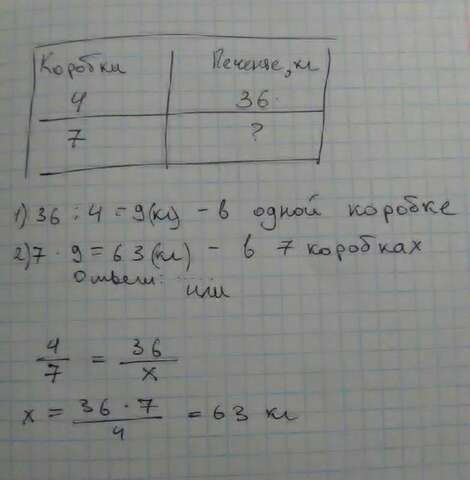 Коробки Печенье, кг
4 36
7 ?
1) 36 : 4 = 9(кг) - в одной коробке
2) 7 · 9 = 63(кг) - в 7 коробках
Ответ:
или
4/7 = 36/x
x = 36 · 7/4 = 63 кг